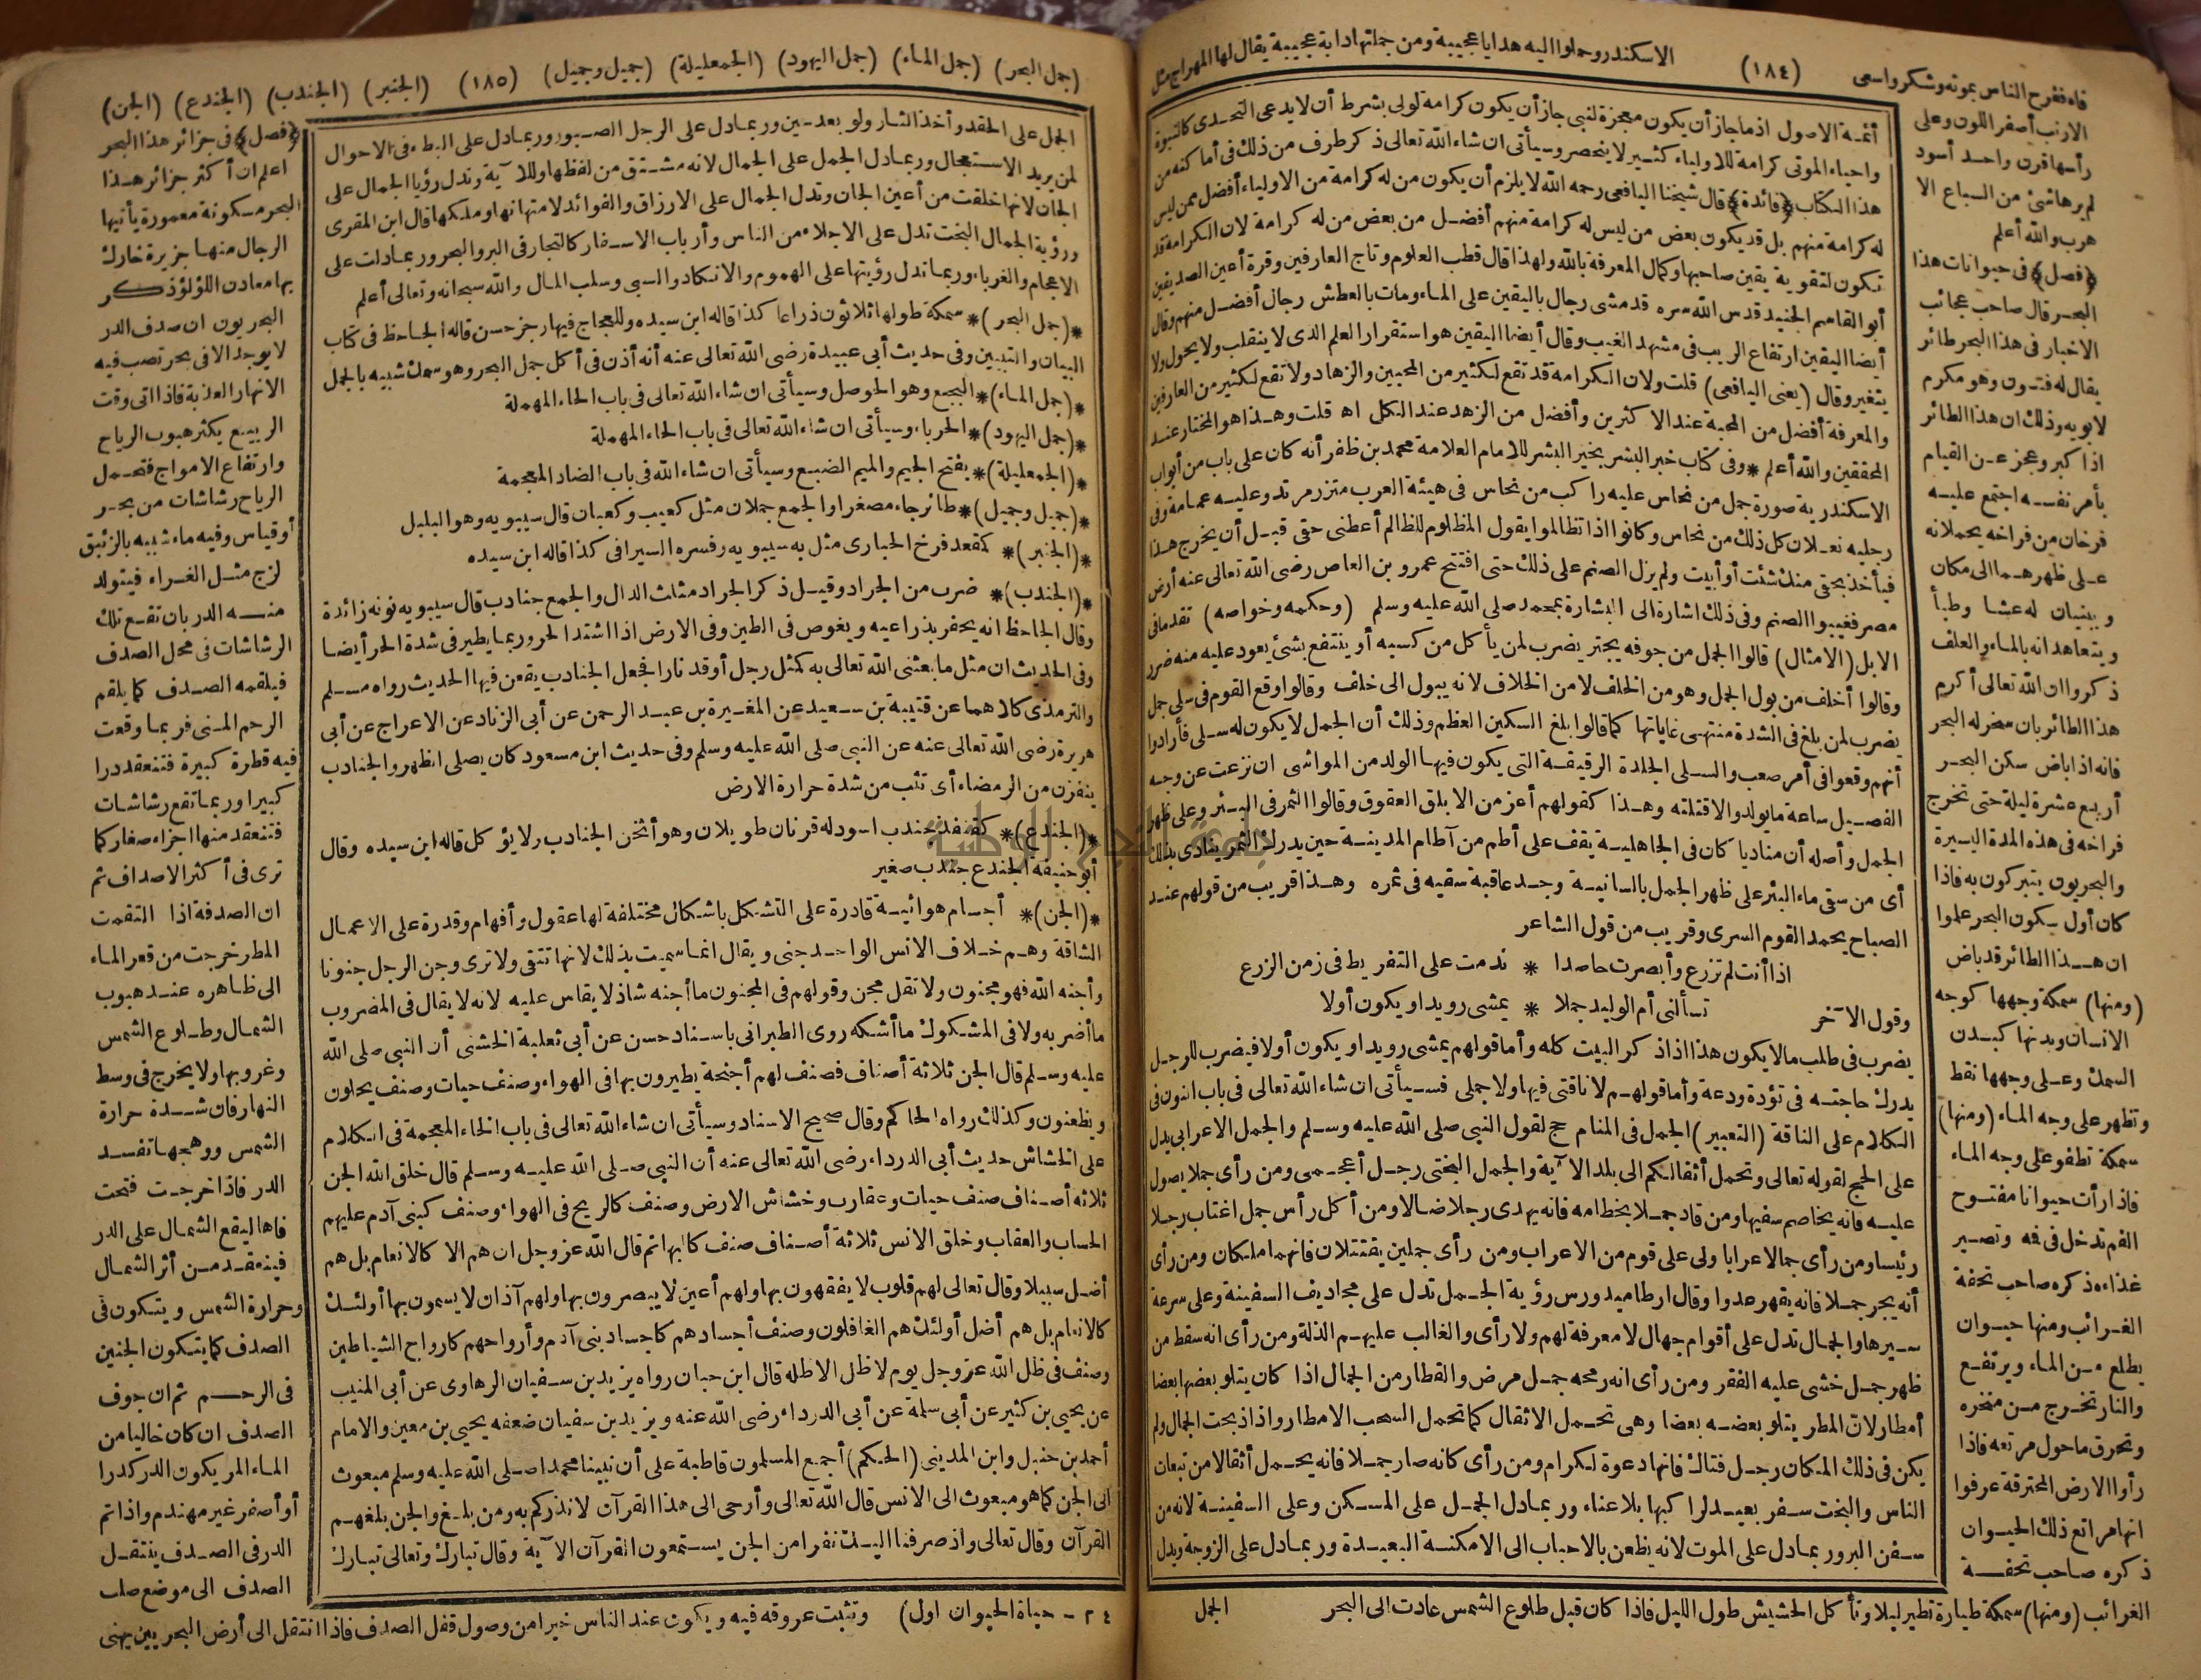 فاه ففرح الناس بموته وشكروا سعى (١٨٤) الاسكندر وحملوا اليه هدايا عجيبة ومن جملتها دابة عجيبة يقال لها المهراج مثل
الارنب أصفر اللون وعلى
رأسها قرن واحد أسود
لم يرها شئ من السباع الا
هرب والله أعلم
﴿فصل﴾ فى حيوانات هذا
البحر قال صاحب عجائب
الاخبار فى هذا البحر طائر
يقال له فتون وهو مكرم
لابويه وذلك ان هذا الطائر
اذا كبر وعجز عن القيام
بأمر نفسه اجتمع عليه
فرخان من فراخه يحملانه
على ظهرهما الى مكان
ويبنيان له عشا وطبأ
ويتعاهدانه بالماء والعلف
ذكروا ان الله تعالى أكرم
هذا الطائر بان سخر له البحر
فانه اذا باض سكن البحر
أربع عشرة ليلة حتى تخرج
فراخه فى هذه المدة اليسيرة
والبحريون يتبركون به فاذا
كان أول سكون البحر علموا
ان هذا الطائر قد باض
(ومنها) سمكة وجهها كوجه
الانسان وبدنها كبدن
السمك وعلى وجهها نقط
وتظهر على وجه الماء (ومنها)
سمكة تطفو على وجه الماء
فاذا رأت حيوانا مفتوح
الفم تدخل فى فه وتصير
غذاءه ذكره صاحب تحفة
الغرائب ومنها حيوان
يطلع من الماء ويرتفع
والنار تخرج من منخره
وتحرق ما حول مرتعه فاذا
رأوا الارض المحترقة عرفوا
انها مراتع ذلك الحيوان
ذكره صاحب تحفة
الغرائب (ومنها) سمكة طيارة تطير ليلا وتأكل الحشيش طول الليل فاذا كان قبل طلوع الشمس عادت الى البحر
أئمة الاصول اذ ما جاز أن يكون معجزة لنبى جاز أن يكون كرامة لولى بشرط أن لا يدعى التحدى كالنبوة
واحياء الموتى كرامة للاولياء كثير لا ينحصر وسيأتى ان شاء الله تعالى ذكر طرف من ذلك فى أما كنه من
هذا الكتاب ﴿فائدة﴾ قال شيخنا اليافعى رحمه الله لا يلزم أن يكون من له كرامة من الاولياء أفضل ممن ليس
له كرامة منهم بل قد يكون بعض من ليس له كرامة منهم أفضل من بعض من له كرامة لان الكرامة قد
تكون لتقوية يقين صاحبها وكمال المعرفة بالله ولهذا قال قطب العلوم وتاج العارفين وقرة أعين الصديقين
أبو القاسم الجنيد قدس الله سره قد مشى رجال باليقين على الماء ومات بالعطش رجال أفضل منهم وقال
أيضا اليقين ارتفاع الريب فى مشهد الغيب وقال أيضا اليقين هو استقرار العلم الذى لا ينقلب ولا يحول ولا
يتغير وقال (يعنى اليافعى) قلت ولان الكرامة قد تقع لكثير من المحبين والزهاد ولا تقع لكثير من العارفين
والمعرفة أفضل من المحبة عند الاكثرين وأفضل من الزهد عند الكل اه قلت وهذا هو المختار عند
المحققين والله أعلم * وفى كتاب خير البشر بخير البشر للامام العلامة محمد بن ظفر أنه كان على باب من أبواب
الاسكندرية صورة جمل من نحاس عليه راكب من نحاس فى هيئة العرب متزر مرتد وعليه عمامة وفى
رجليه نعلان كل ذلك من نحاس وكانوا اذا تظالموا يقول المظلوم للظالم أعطنى حقى قبل أن يخرج هذا
فيأخذ بحقى منك شئت أو أبيت ولم يزل الصنم على ذلك حتى افتتح عمرو بن العاص رضى الله تعالى عنه أرض
مصر فغيبوا الصنم وفى ذلك اشارة الى البشارة بمحمد صلى الله عليه وسلم (وحكمه وخواصه) تقدما فى
الابل (الامثال) قالوا الجمل من جوفه يجتر يضرب لمن يأكل من كسبه أو ينتفع بشئ يعود عليه منه ضرر
وقالوا أخلف من بول الجمل وهو من الخلف لا من الخلاف لانه يبول الى خلف وقالوا وقع القوم فى سلى جمل
يضرب لمن بلغ فى الشدة منتهى غاياتها كما قالوا بلغ السكين العظم وذلك أن الجمل لا يكون له سلى فأرادوا
أنهم وقعوا فى أمر صعب والسلى الجلدة الرقيقة التى يكون فيها الولد من المواشى ان نزعت عن وجه
الفصيل ساعة ما يولد والا قتلته وهذا كقولهم أعز من الابلق العقوق وقالوا الثمر فى البئر وعلى ظهر
الجمل وأصله أن مناديا كان فى الجاهلية يقف على أطم من آطام المدينة حين يدرك الثمر ينادى بذلك
أى من سقى ماء البئر على ظهر الجمل بالسانية وجد عاقبة سقيه فى ثمره وهذا قريب من قولهم عند
الصباح يحمد القوم السرى وقريب من قول الشاعر
اذا أنت لم تزرع وأبصرت حاصدا * ندمت على التفريط فى زمن الزرع
وقول الآخر تسألنى أم الوليد جملا * يمشى رويدا ويكون أولا
يضرب فى طلب ما لا يكون هذا اذا ذكر البيت كله وأما قولهم يمشى رويدا ويكون أولا فيضرب للرجل
يدرك حاجته فى تؤدة ودعة وأما قولهم لا ناقتى فيها ولا جملى فسيأتى ان شاء الله تعالى فى باب النون فى
الكلام على الناقة (التعبير) الجمل فى المنام حج لقول النبى صلى الله عليه وسلم والجمل الاعرابى يدل
على الحج لقوله تعالى وتحمل أثقالكم الى بلد الآية والجمل البختى رجل أعجمى ومن رأى جملا يصول
عليه فانه يخاصم سفيها ومن قاد جملا بخطامه فانه يهدى رجلا ضالا ومن أكل رأس جمل اغتاب رجلا
رئيسا ومن رأى جمالا عرابا ولى على قوم من الاعراب ومن رأى جملين يقتتلان فانهما ملكان ومن رأى
أنه يجر جملا فانه يقهر عدوا وقال ارطاميدورس رؤية الجمل تدل على مجاديف السفينة وعلى سرعة
سيرها والجمال تدل على أقوام جهال لا معرفة لهم ولا رأى والغالب عليهم الذلة ومن رأى انه سقط من
ظهر جمل خشى عليه الفقر ومن رأى انه رمحه جمل مرض والقطار من الجمال اذا كان يتلو بعضها بعضا
أمطار لان المطر يتلو بعضه بعضا وهى تحمل الاثقال كما تحمل السحب الامطار واذا ذبحت الجمال ولم
يكن فى ذلك المكان رجل فتاك فانها دعوة لكرام ومن رأى كانه صار جملا فانه يحمل أثقالا من تبعات
الناس والبخت سفر بعيد لراكبها بلا عناء وربما دل الجمل على المسكن وعلى السفينة لانه من
سفن البر وربما دل على الموت لانه يظعن بالاحباب الى الامكنة البعيدة وربما دل على الزوجة ويدل
الجمل
(جمل البحر) (جمل الماء) (جمل اليهود) (الجمعليلة) (جميل وجميل) (١٨٥) (الجنبر) (الجندب) (الجندع) (الجن)
الجمل على الحقد وأخذ الثار ولو بعد حين وربما دل على الرجل الصبور وربما دل على البطء فى الاحوال
لمن يريد الاستعجال وربما دل الجمل على الجمال لانه مشتق من لفظها وللآية وتدل رؤيا الجمال على
الجان لانها خلقت من أعين الجان وتدل الجمال على الارزاق والفوائد لامتهانها وملكها قال ابن المقرى
ورؤية الجمال البخت تدل على الاجلاء من الناس وأرباب الاسفار كالتجار فى البر والبحر وربما دلت على
الاعجام والغرباء وربما تدل رؤيتها على الهموم والانكاد والسبى وسلب المال والله سبحانه وتعالى أعلم
*(جمل البحر)* سمكة طولها ثلاثون ذراعا كذا قاله ابن سيده وللعجاج فيها رجز حسن قاله الجاحظ فى كتاب
البيان والتبيين وفى حديث أبى عبيدة رضى الله تعالى عنه أنه أذن فى أكل جمل البحر وهو سمك شبيه بالجمل
*(جمل الماء)* البجع وهو الحوصل وسيأتى ان شاء الله تعالى فى باب الحاء المهملة
*(جمل اليهود)* الحرباء وسيأتى ان شاء الله تعالى فى باب الحاء المهملة
*(الجمعليلة)* بفتح الجيم والميم الضبع وسيأتى ان شاء الله فى باب الضاد المعجمة
*(جميل وجميل)* طائر جاء مصغرا والجمع جملان مثل كعيب وكعبان قال سيبويه وهو البلبل
*(الجنبر)* كقعد فرخ الحبارى مثل به سيبويه وفسره السيرافى كذا قاله ابن سيده
*(الجندب)* ضرب من الجراد وقيل ذكر الجراد مثلث الدال والجمع جنادب قال سيبويه نونه زائدة
وقال الجاحظ انه يحفر بذراعيه ويغوص فى الطين وفى الارض اذا اشتد الحر وربما يطير فى شدة الحر أيضا
وفى الحديث ان مثل ما بعثنى الله تعالى به كمثل رجل أوقد نارا فجعل الجنادب يقعن فيها الحديث رواه مسلم
والترمذى كلاهما عن قتيبة بن سعيد عن المغيرة بن عبد الرحمن عن أبى الزناد عن الاعراج عن أبى
هريرة رضى الله تعالى عنه عن النبى صلى الله عليه وسلم وفى حديث ابن مسعود كان يصلى الظهر والجنادب
ينفزن من الرمضاء أى تثب من شدة حرارة الارض
*(الجندع)* كقنفذ جندب اسود له قرنان طويلان وهو أثخن الجنادب ولا يؤكل قاله ابن سيده وقال
أبو حنيفة الجندع جندب صغير
*(الجن)* أجسام هوائية قادرة على التشكل باشكال مختلفة لها عقول وأفهام وقدرة على الاعمال
الشاقة وهم خلاف الانس الواحد جنى ويقال انما سميت بذلك لانها تتقى ولا ترى وجن الرجل جنونا
وأجنه الله فهو مجنون ولا تقل مجن وقولهم فى المجنون ما أجنه شاذ لا يقاس عليه لانه لا يقال فى المضروب
ما أضربه ولا فى المشكوك ما أشكه روى الطبرانى باسناد حسن عن أبى ثعلبة الخشنى أن النبى صلى الله
عليه وسلم قال الجن ثلاثة أصناف فصنف لهم أجنحة يطيرون بها فى الهواء وصنف حيات وصنف يحلون
ويظعنون وكذلك رواه الحاكم وقال صحيح الاسناد وسيأتى ان شاء الله تعالى فى باب الخاء المعجمة فى الكلام
على الخشاش حديث أبى الدرداء رضى الله تعالى عنه أن النبى صلى الله عليه وسلم قال خلق الله الجن
ثلاثة أصناف صنف حيات وعقارب وخشاش الارض وصنف كالريح فى الهواء وصنف كبنى آدم عليهم
الحساب والعقاب وخلق الانس ثلاثة أصناف صنف كالبهائم قال الله عز وجل ان هم الا كالانعام بل هم
أضل سبيلا وقال تعالى لهم قلوب لا يفقهون بها ولهم أعين لا يبصرون بها ولهم آذان لا يسمعون بها أولئك
كالانعام بل هم أضل أولئك هم الغافلون وصنف أجسادهم كاجساد بنى آدم وأرواحهم كارواح الشياطين
وصنف فى ظل الله عز وجل يوم لا ظل الا ظله قال ابن حبان رواه يزيد بن سفيان الرهاوى عن أبى المنيب
عن يحيى بن كثير عن أبى سلمة عن أبى الدرداء رضى الله عنه ويزيد بن سفيان ضعفه يحيى بن معين والامام
أحمد بن حنبل وابن المدينى (الحكم) أجمع المسلمون قاطبة على أن نبينا محمدا صلى الله عليه وسلم مبعوث
الى الجن كما هو مبعوث الى الانس قال الله تعالى وأوحى الى هذا القرآن لانذركم به ومن بلغ والجن بلغهم
القرآن وقال تعالى واذ صرفنا اليك نفرا من الجن يستمعون القرآن الآية وقال تبارك وتعالى تبارك
﴿فصل﴾ فى جزائر هذا البحر
اعلم ان أكثر جزائر هذا
البحر مسكونة معمورة يأتيها
الرجال منها جزيرة خارك
بها معادن اللؤلؤ ذكر
البحريون ان صدف الدر
لا يوجد الا فى بحر تصب فيه
الانهار العذبة فاذا اتى وقت
الربيع يكثر هبوب الرياح
وارتفاع الامواج فتحمل
الرياح رشاشات من بحر
أوقياس وفيه ماء شبيه بالزئبق
لزج مثل الغراء فيتولد
منه الدر بان تقع تلك
الرشاشات فى محل الصدف
فيلقمه الصدف كما يلقم
الرحم المنى فربما وقعت
فيه قطرة كبيرة فتنعقد درا
كبيرا وربما تقع رشاشات
فتنعقد منها اجزاء صغار كما
ترى فى أكثر الاصداف ثم
ان الصدفة اذا التقمت
المطر خرجت من قعر الماء
الى ظاهره عند هبوب
الشمال وطلوع الشمس
وغروبها ولا يخرج فى وسط
النهار فان شدة حرارة
الشمس ووهجها تفسد
الدر فاذا خرجت فتحت
فاها ليقع الشمال على الدر
فينعقد من أثر الشمال
وحرارة الشمس ويتكون فى
الصدف كما يتكون الجنين
فى الرحم ثم ان جوف
الصدف ان كان خاليا من
الماء المر يكون الدر كدرا
أو أصفر غير مهندم واذا تم
الدر فى الصدف ينتقل
الصدف الى موضع صلب
وتثبت عروقه فيه ويكون عند الناس خيرا من وصول قفل الصدف فاذا انتقل الى أرض البحر يين يهنى
(٢٤ - حياة الحيوان اول)